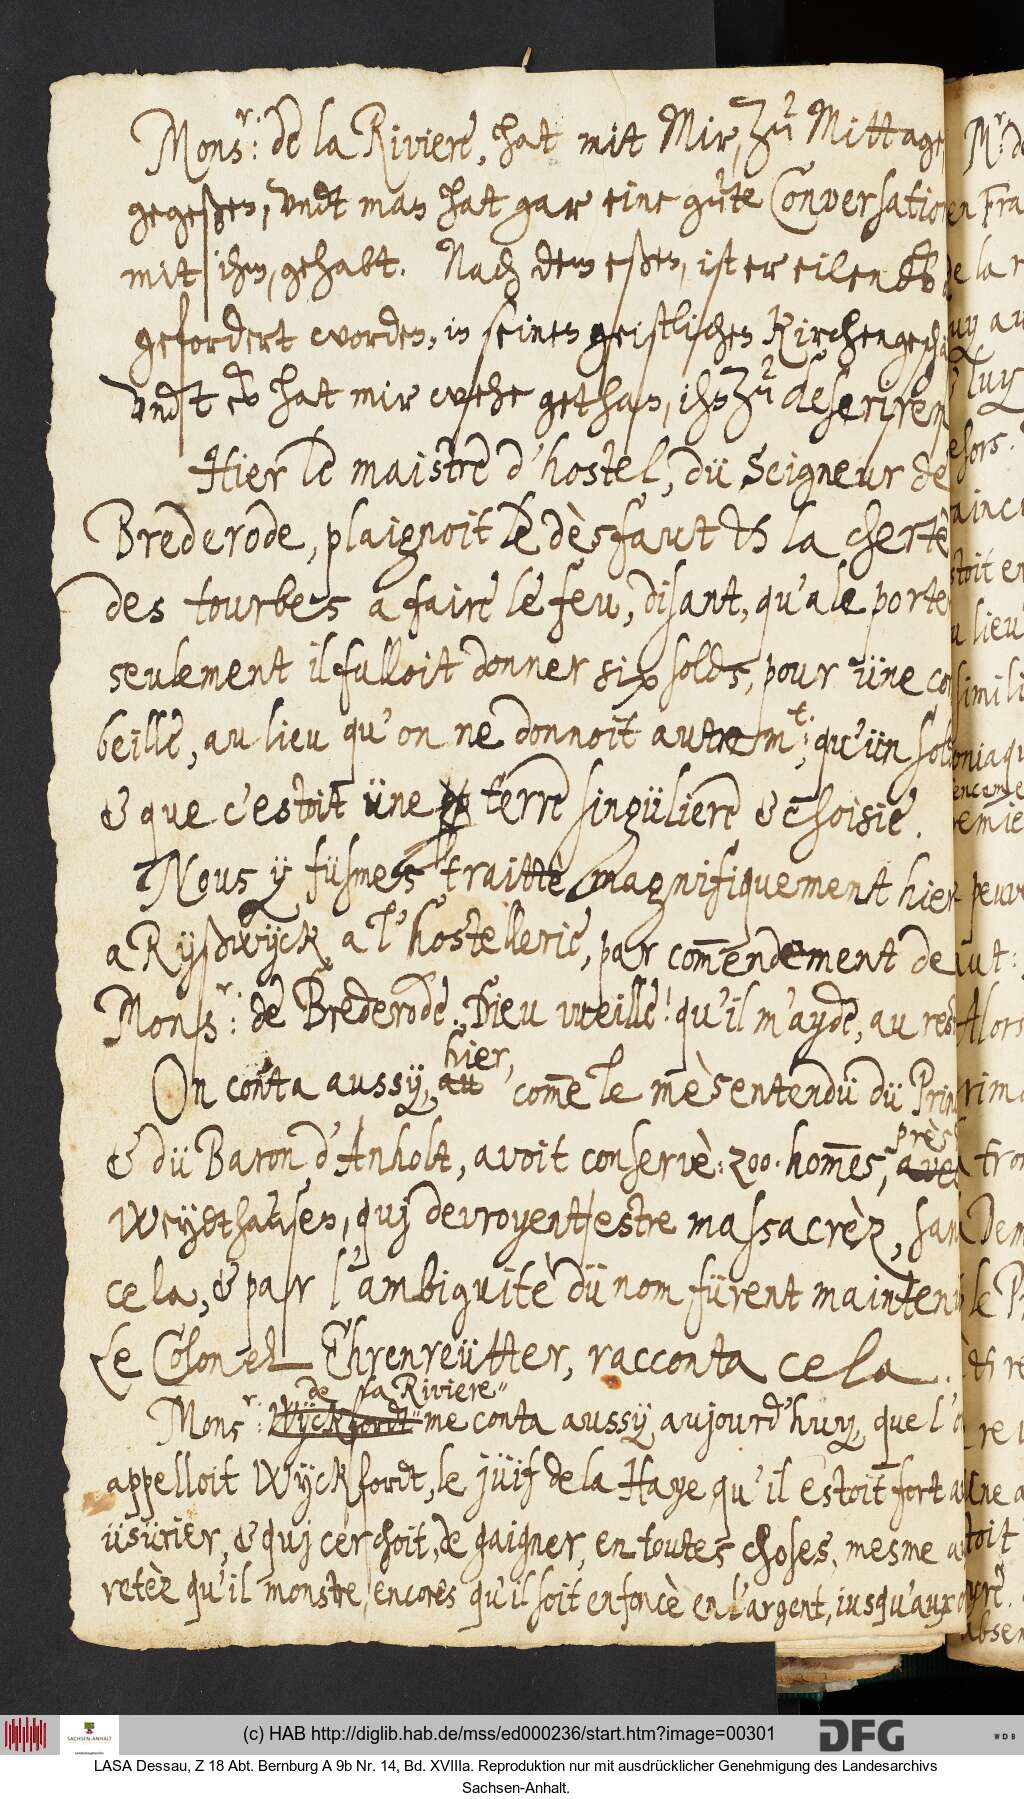 Mons.r: de la Riviere, hat mit Mir, zů Mittage,
gegeßen, vndt man hat gar eine gůte Conversation
mit ihm, gehabt. Nach dem eßen, ist er eilends
gefordert worden, in seinen geistlichen Kirchengeschä
vndt es hat mir wehe gethan, ihn zů deseriren
Hier le maistre d'hostel, dü Seigneur de
Brederode, plaignoit le dèsfaut & la chertè
des tourbes a faire le feu, disant, qu'a le porter
seulement il falloit donner six solds, pour üne cor
beille, au lieu qu'on ne donnoit autrem.t: qu'ün sold
& que c'estoit üne terre singüliere & choisie.
Nous ÿ füsmes traittè magnifiquement hier
a Rÿßwÿck a l'hostellerie, par com̅endement de
Mons.r: de Brederode. Dieu vueille! qu'il m'ayde, au rest
On conta aussÿ, au hier, com̅e le mèsentendü dü Prin
& dü Baron d'Anholt, avoit conservè: 200. hom̅es, avec près
Weÿdthausen, quj devroyent estre massacrèz, sans
cela, & par l'ambiguitè dü nom fürent mainteni
Le Colonel Ehrenreütter, racconta cela.
de la Riviere"
Mons.r: Wÿckfordt" me conta aussÿ aujourd'huy, que l'
appelloit Wÿckfordt, le jüif de la Haye qu'il estoit fort
üsürier, & quj cerchoit, de gaigner, en toutes choses, mesme
retèz qu'il monstre, encores qu'il soit enfoncè en l'argent, iusqu'aux
M.r: d
en Fra
de la
aut:
Alors
(c) HAB http://diglib.hab.de/mss/ed000236/start.htm?image=00301
SACHSEN-ANHALT
DFG
WDB
LASA Dessau, Z 18 Abt. Bernburg A 9b Nr. 14, Bd. XVIIIa. Reproduktion nur mit ausdrücklicher Genehmigung des Landesarchivs
Sachsen-Anhalt.